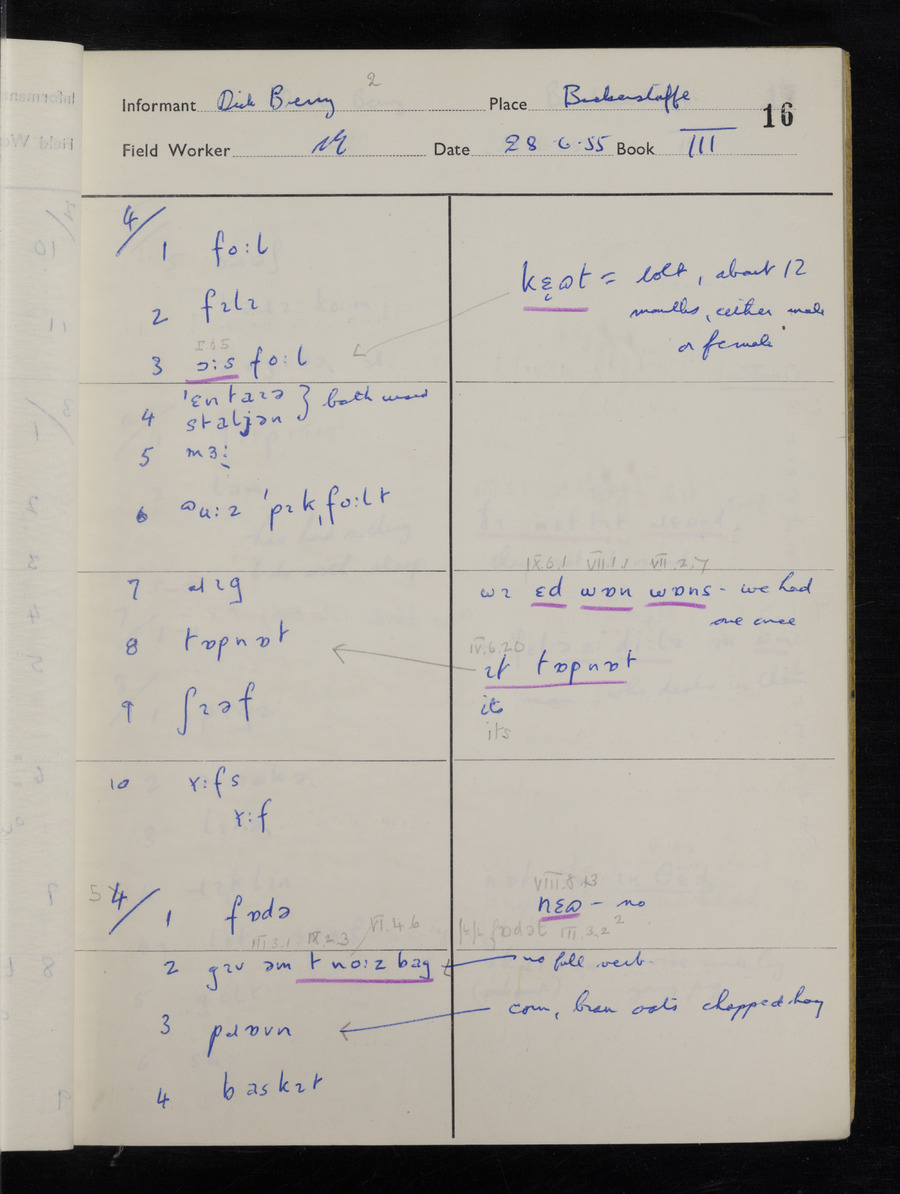 2
Informant Dick Berry Place Bickerstaffe 16
Field Worker Date 28·6·55 Book III
4/
1 fo:l
2 fɪlɪ
I 5
3 ɔ:s fo:l
kɛ̨ɷt = colt, about 12
months, either male
or female
4 'ɛntaɪə } both used
staljən
5 mɜ:
6 'pɪk,fo:lt
7 ɹɪg
IX.6.1 VII.1.1 VII.2.7
wɪ ɛd wɒn wɒns - we had
one once
8 tɒpnɒt
IV.6.20
ɪt tɒpnɒt
its
its
9 ʃɪəf
10 ɤ:fs
ɤ:f
5 4/
1 fɒdə
VIII.8.13
nɛɷ - no
III.3.1 IX.2.3 VI.4.6
fɒdət III.3.2²
2 gɪv əm t no:z bag
no full verb
3 pɹɒvn
corn, bran oats chopped hay
4 baskɪt